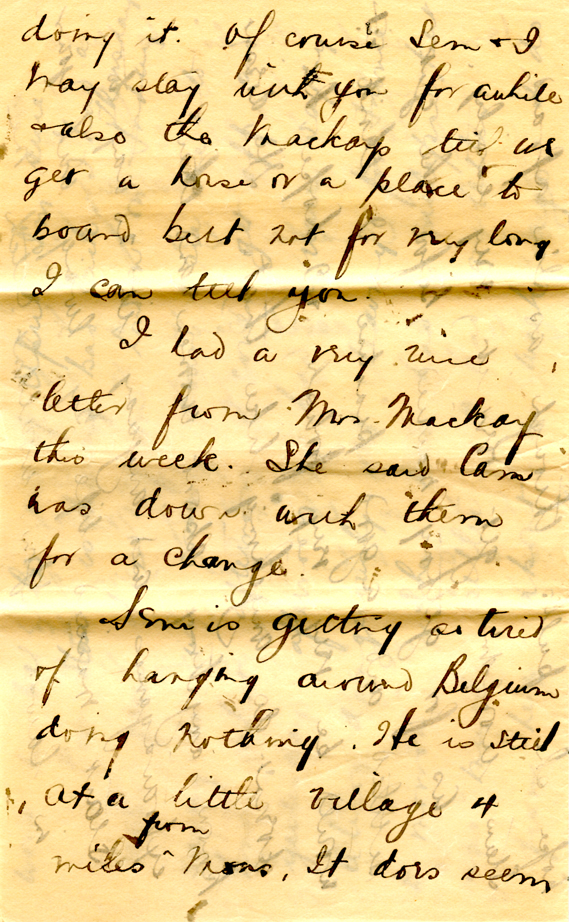 doing it. Of course Lem & I
may stay with you for awhile
& also the Mackays till we
get a house or a place to
board but not for very long
I can tell you.
I had a very nice
letter from Mrs. Mackay
this week. She said Cam
was down with them
for a change.
Lem is getting so tired
of hanging around Belgium
doing nothing. He is still
at a little village 4
from
miles Mons. It does seem